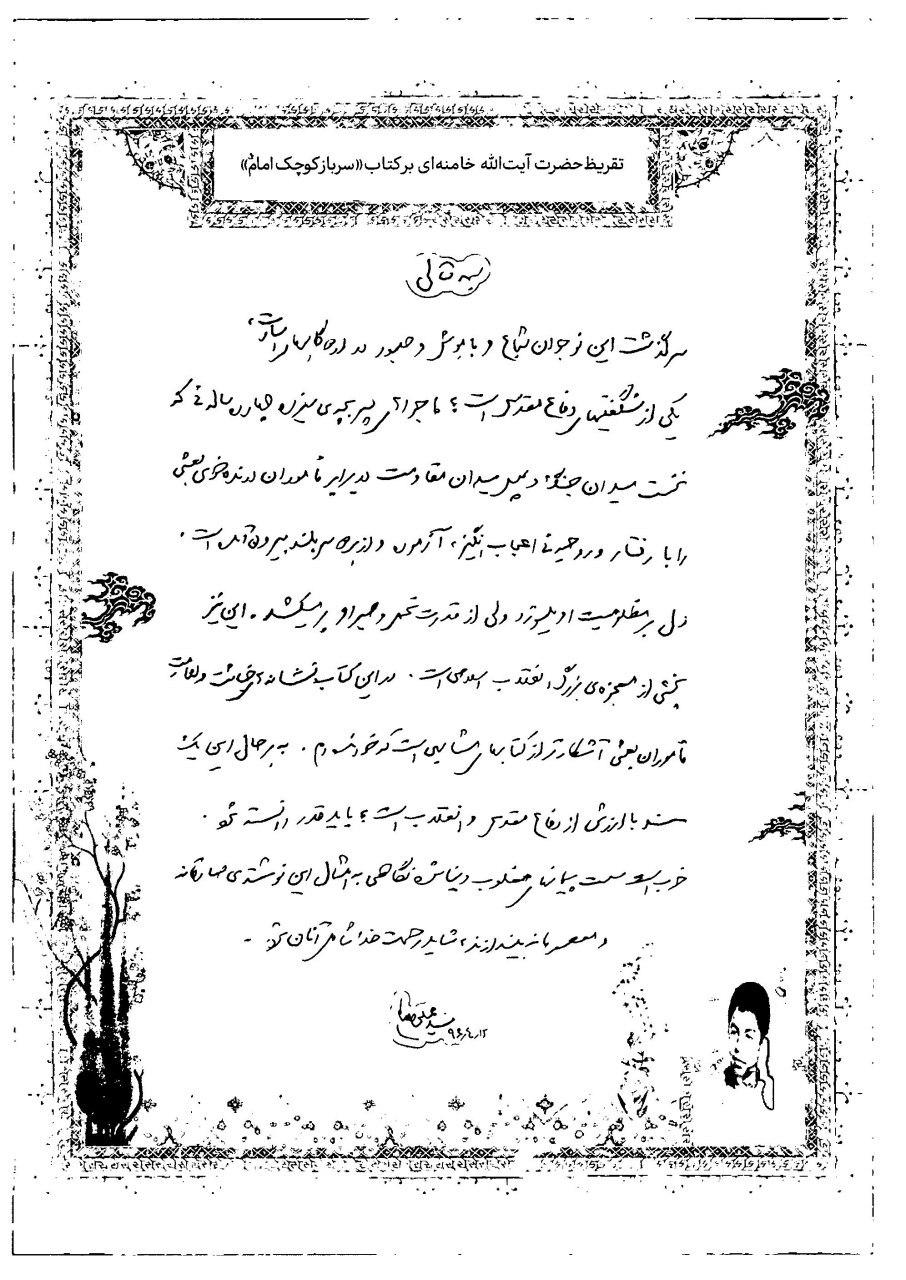 تقریظ حضرت آیت‌الله خامنه‌ای بر کتاب «سرباز کوچک امام»
بسمه تعالی
سرگذشت این نوجوان شجاع و باهوش و صبور در اردوگاههای اسارت،
یکی از شگفتیهای دفاع مقدس است؛ ماجراهای پسربچه‌ی سیزده چهارده ساله‌ئی که
نخست میدان جنگ و سپس میدان مقاومت در برابر مأموران درنده‌خوی بعثی
را با رفتار و روحیه‌ئی اعجاب‌انگیز، آزموده و از هر دو سربلند بیرون آمده است.
دل بر مظلومیت او میسوزد ولی از قدرت تحمل و صبر او پر میکشد. این نیز
بخشی از معجزه‌ی بزرگ انقلاب اسلامی است. در این کتاب نشانه‌های خباثت و لئامت
مأموران بعثی آشکارتر از کتابهای مشابهی است که خوانده‌ام. به هر حال این یک
سند باارزش از دفاع مقدس و انقلاب است؛ باید قدر دانسته شود.
خوب است سست پیمانهای مغلوب دنیا شده نگاهی به امثال این نوشته‌ی صادقانه
و معصومانه بیندازند، شاید رحمت خدا شامل آنان شود.
سید علی خامنه‌ای